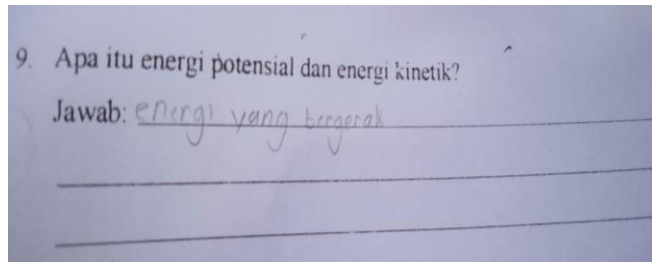 9. Apa itu energi potensial dan energi kinetik?
Jawab: energi yang bergerak